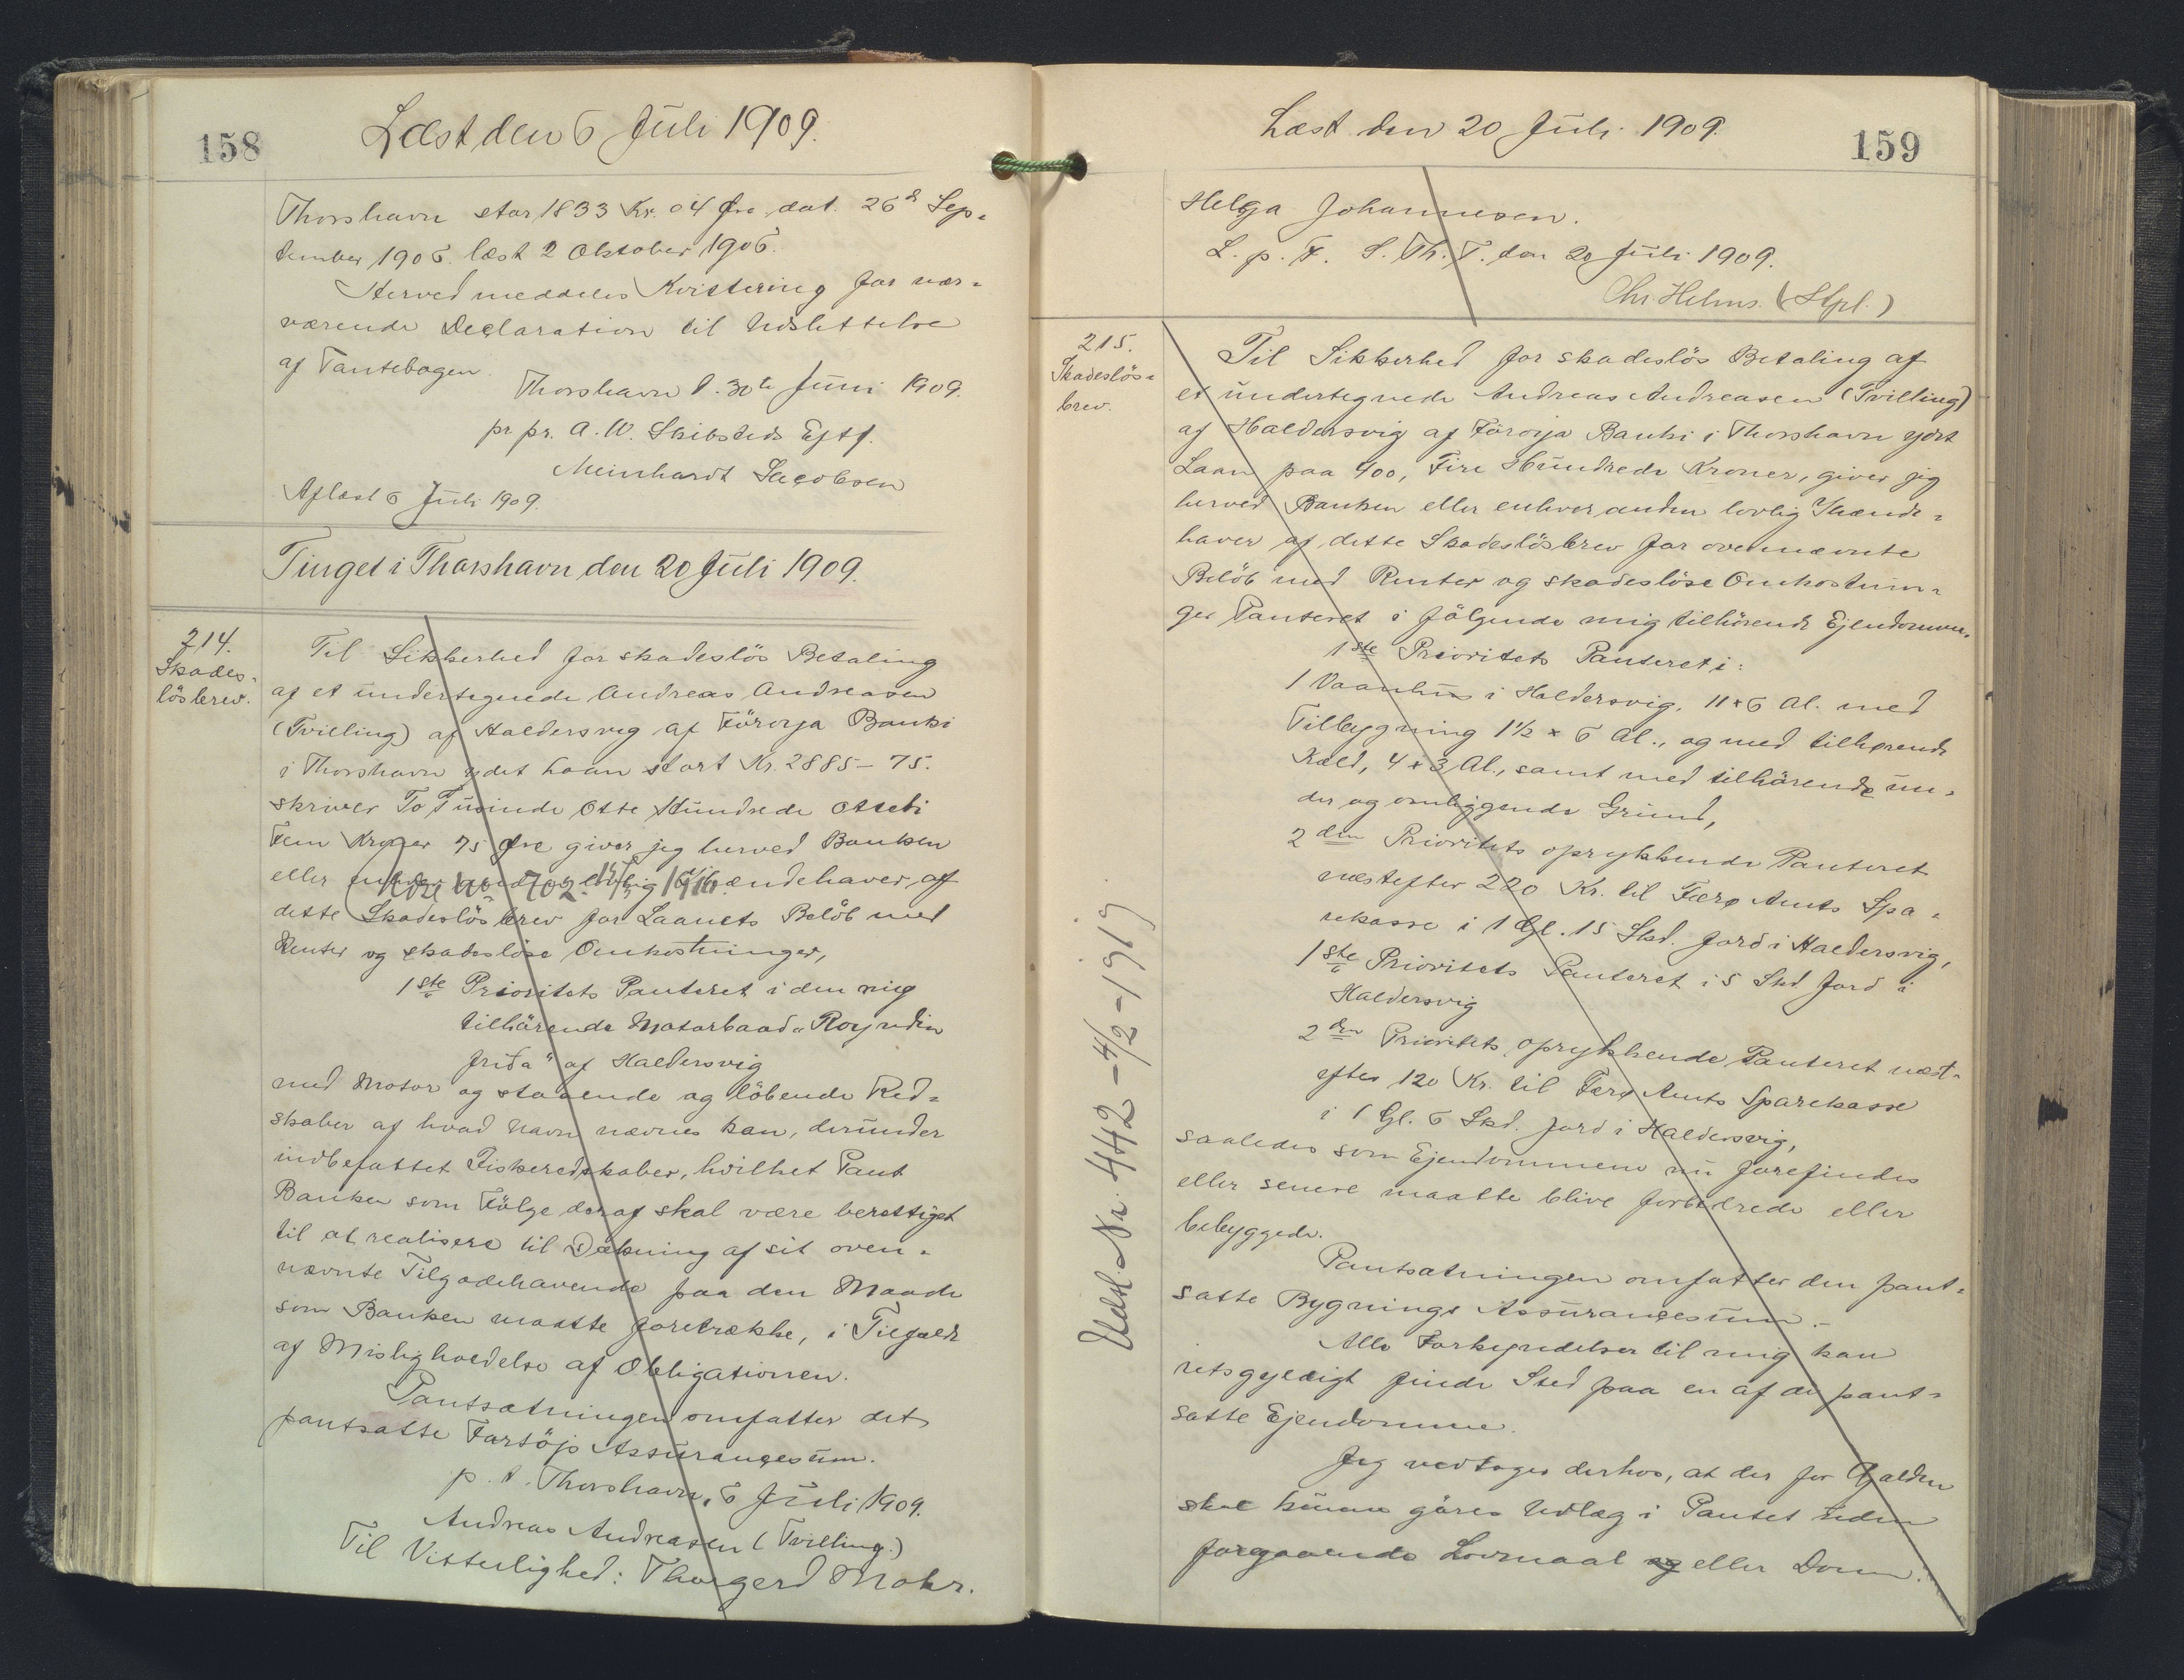 158
Læst den 6 Juli 1909.
Thorshavn stor 1833 Kr. 04 Øre, dat. 26d Sep-
tember 1906. læst 2 Oktober 1906.
Herved meddeles Kvittering for nær-
værende Declaration til Udslettelse
af Pantebogen.
Thorshavn d. 30te Juni 1909.
pr pr. A. W. Skibsteds Eftf.
Meinhardt Jacobsen
Aflæst 6 Juli 1909.
Tinget i Thorshavn den 20 Juli 1909.
214.
Skades-
lösbrev.
Til Sikkerhed for skadeslös Betaling
af et undertegnede Andreas Andreasen
(Tvilling) af Haldersvig af Föroja Banki
i Thorshavn ydet Laan stort Kr. 2885-75.
skriver To Tusinde Otte Hundrede Otteti
Fem Kroner 75 Øre giver jeg herved Banken
eller Ihændehaver af
dette Skadeslösbrev for Laanets Belöb med
Renter og skadeslöse Omkostninger,
1ste Prioritets Panteret i den mig
tilhörende Motorbaad "Royndin
frida" af Haldersvig
med Motor og staaende og löbende Red-
skaber af hvad Navn nævnes kan, derunder
indbefattet Fiskeredskaber, hvilket Pant
Banken som Fölge deraf skal være berettiget
til at realisere til Dækning af sit oven-
nævnte Tilgodehavende paa den Maade
som Banken maatte foretrække, i Tilfælde
af Misligholdelse af Obligationen.
Pantsætningen omfatter det
pantsatte Fartöjs Assurancesum.
p. t. Thorshavn, 6 Juli 1909.
Andreas Andreasen (Tvilling.)
Til Vitterlighed: Thorgerd Mohr.
Læst den 20 Juli 1909.
159
Helga Johannesen.
L. p. F. S. Th. T. den 20 Juli 1909.
Chr. Helms. (Stpl.)
215.
Skadeslös-
brev.
Til Sikkerhed for skadeslös Betaling af
et undertegnede Andreas Andreasen (Tvilling)
af Haldersvig af Föroja Banki i Thorshavn ydet
Laan paa 400, Fire Hundrede Kroner, giver jeg
herved Banken eller enhver anden lovlig Ihænde-
haver af dette Skadeslösbrev for ovennævnte
Belöb med Renter og skadeslöse Omkostnin-
ger Panteret i fölgende mig tilhörende Ejendomme.
1ste Prioritets Panteret i:
1 Vaanhus i Haldersvig, 11 x 6 Al. med
Tilbygning 1 1/2 x 6 Al., og med tilhørende
Kæld, 4 x 3 Al., samt med tilhörende un-
der og omliggende Grund,
2den Prioritets oprykkende Panteret
næstefter 220 Kr. til Færø Amts Spa-
rekasse i 1 Gl. 15 Skd. Jord i Haldersvig,
1ste Prioritets Panteret i 5 Skd Jord i
Haldersvig
2den Prioritets oprykkende Panteret næst-
efter 120 Kr. til Færø Amts Sparekasse
i 1 Gl. 6 Skd. Jord i Haldersvig,
saaledes som Ejendommene nu forefindes
eller senere maatte blive forbedrede eller
bebyggede.
Pantsætningen omfatter den pant-
satte Bygnings Assurancesum.-
Alle Forkyndelser til mig kan
retsgyldigt finde Sted paa en af de pant-
satte Ejendomme.
Jeg vedtager derhos, at der for Gjælden
skal kunne göres Udlæg i Pantet uden
foregaaende Lovmaal og eller Dom.
Udsl. Nr. 442 - 4/2 - 1919.